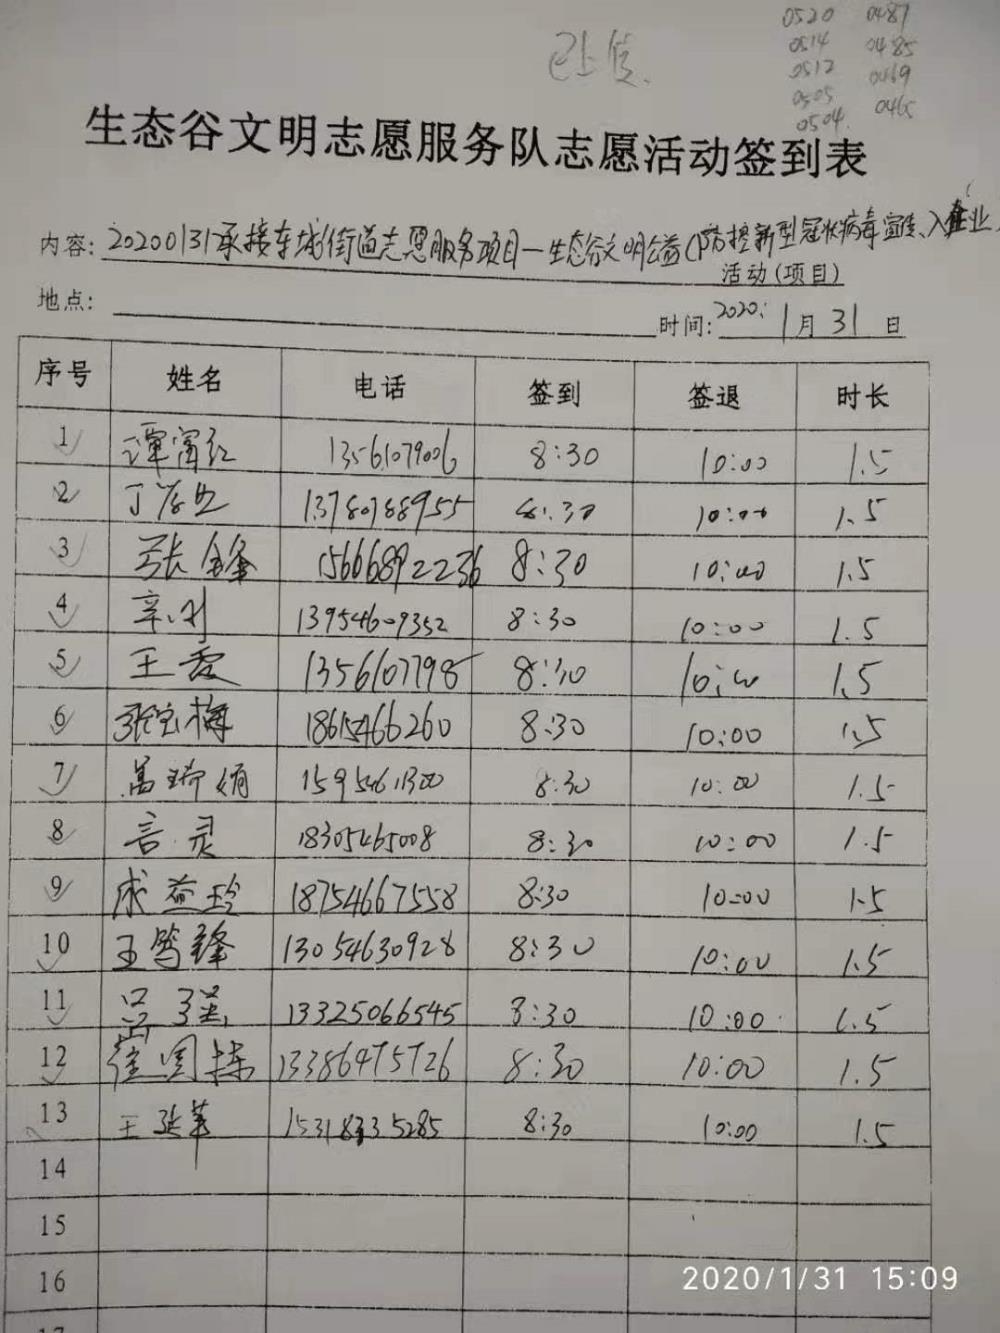 0520 0487
0514 0485
0512 0469
0505 0465
0504
已上传.
生态谷文明志愿服务队志愿活动签到表
内容: 20200131承接东城街道志愿服务项目—生态谷文明公益(防控新型冠状病毒宣传、入企业)
活动(项目)
地点:
时间: 2020. 1月31日
序号 姓名 电话 签到 签退 时长
1 谭富红 13561079006 8:30 10:00 1.5
2 13780788955 8:30 10:00 1.5
3 张锋 15666892236 8:30 10:00 1.5
4 辛利 13954609352 8:30 10:00 1.5
5 王爱 13561077985 8:30 10:00 1.5
6 张宝梅 18615466260 8:30 10:00 1.5
7 高瑞娟 15954611300 8:30 10:00 1.5
8 言灵 18305465008 8:30 10:00 1.5
9 成益玲 18754667558 8:30 10:00 1.5
10 王笃锋 13054630928 8:30 10:00 1.5
11 吕强 13325066545 8:30 10:00 1.5
12 崔国栋 13386475726 8:30 10:00 1.5
13 王延革 15318335285 8:30 10:00 1.5
14
15
16
17
2020/1/31 15:09